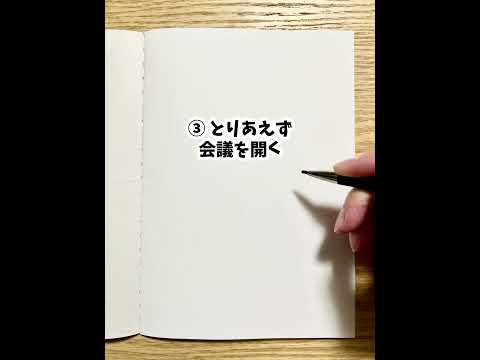 ③ とりあえず
会議を開く